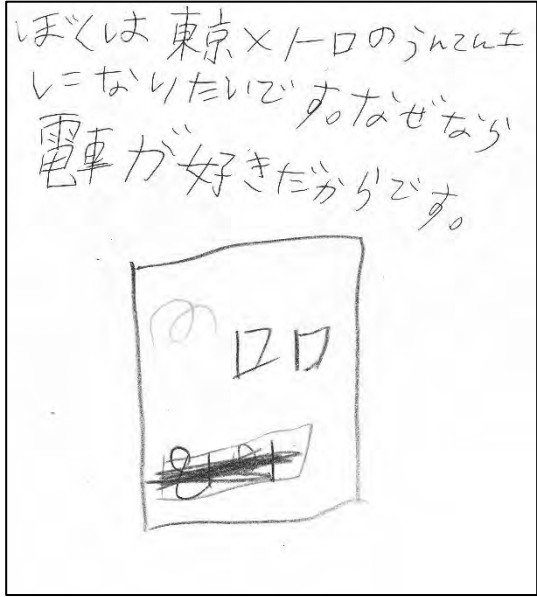 ぼくは東京メトロのうんてん士
になりたいです。なぜなら
電車が好きだからです。